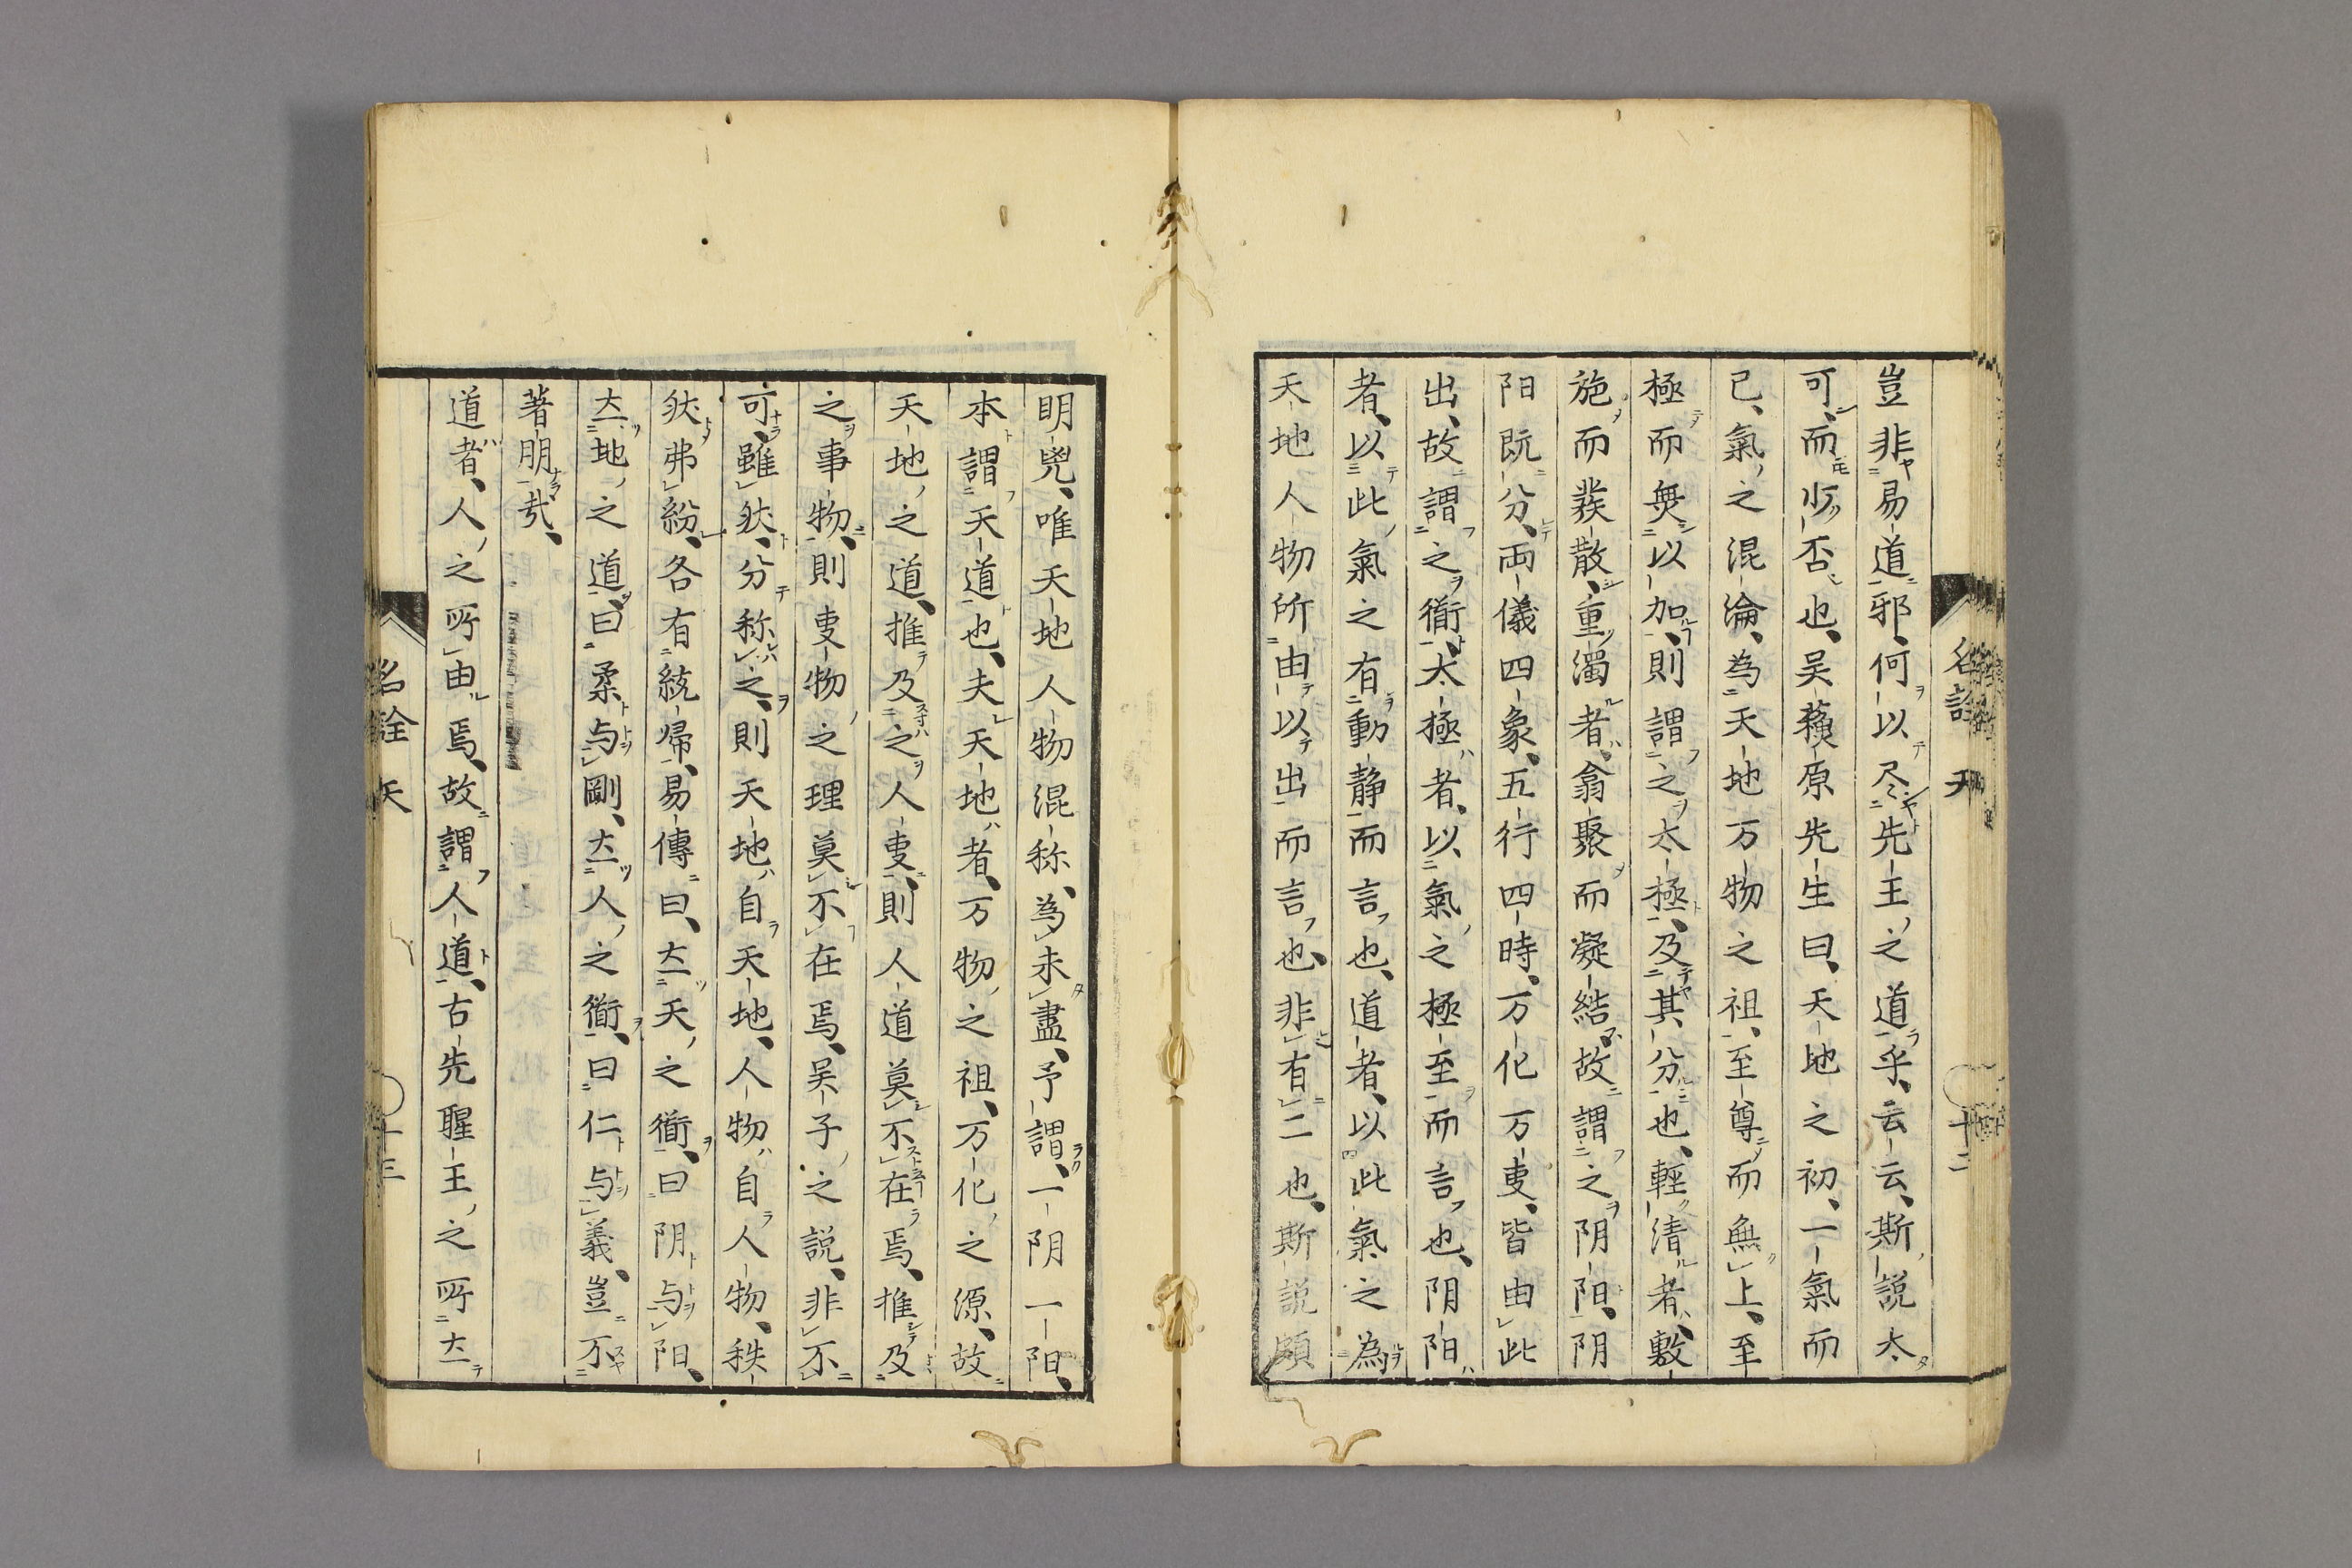 豈非易道邪、何以尽先王之道乎、云云、斯説太
可、而少否也、吴蘓原先生曰、天地之初、一氣而
已、氣之混淪、為天地万物之祖、至尊而無上、至
極而無以加、則謂之太極、及其分也、輕清者、敷
施而發散、重濁者、翕聚而凝結、故謂之阴阳、阴
阳既分、両儀四象、五行四時、万化万叓、皆由此
出、故謂之衜、太極者、以氣之極至而言也、阴阳
者、以此氣之有動静而言也、道者、以此氣之為
天地人物所由以出而言也、非有二也、斯説頗
名詮 天 十二
明鬯、唯天地人物混称、為未盡、予謂、一阴一阳、
本謂天道也、夫天地者、万物之祖、万化之源、故
天地之道、推及之人叓、則人道莫不在焉、推及
之事物、則叓物之理莫不在焉、吴子之説、非不
可、雖肰、分称之、則天地自天地、人物自人物、秩
肰弗紛、各有統帰、易傳曰、立天之衜、曰阴与阳、
立地之道、曰柔与剛、立人之衜、曰仁与義、豈不
著明哉、
道者、人之所由焉、故謂人道、古先聖王之所立
名詮 天 十三